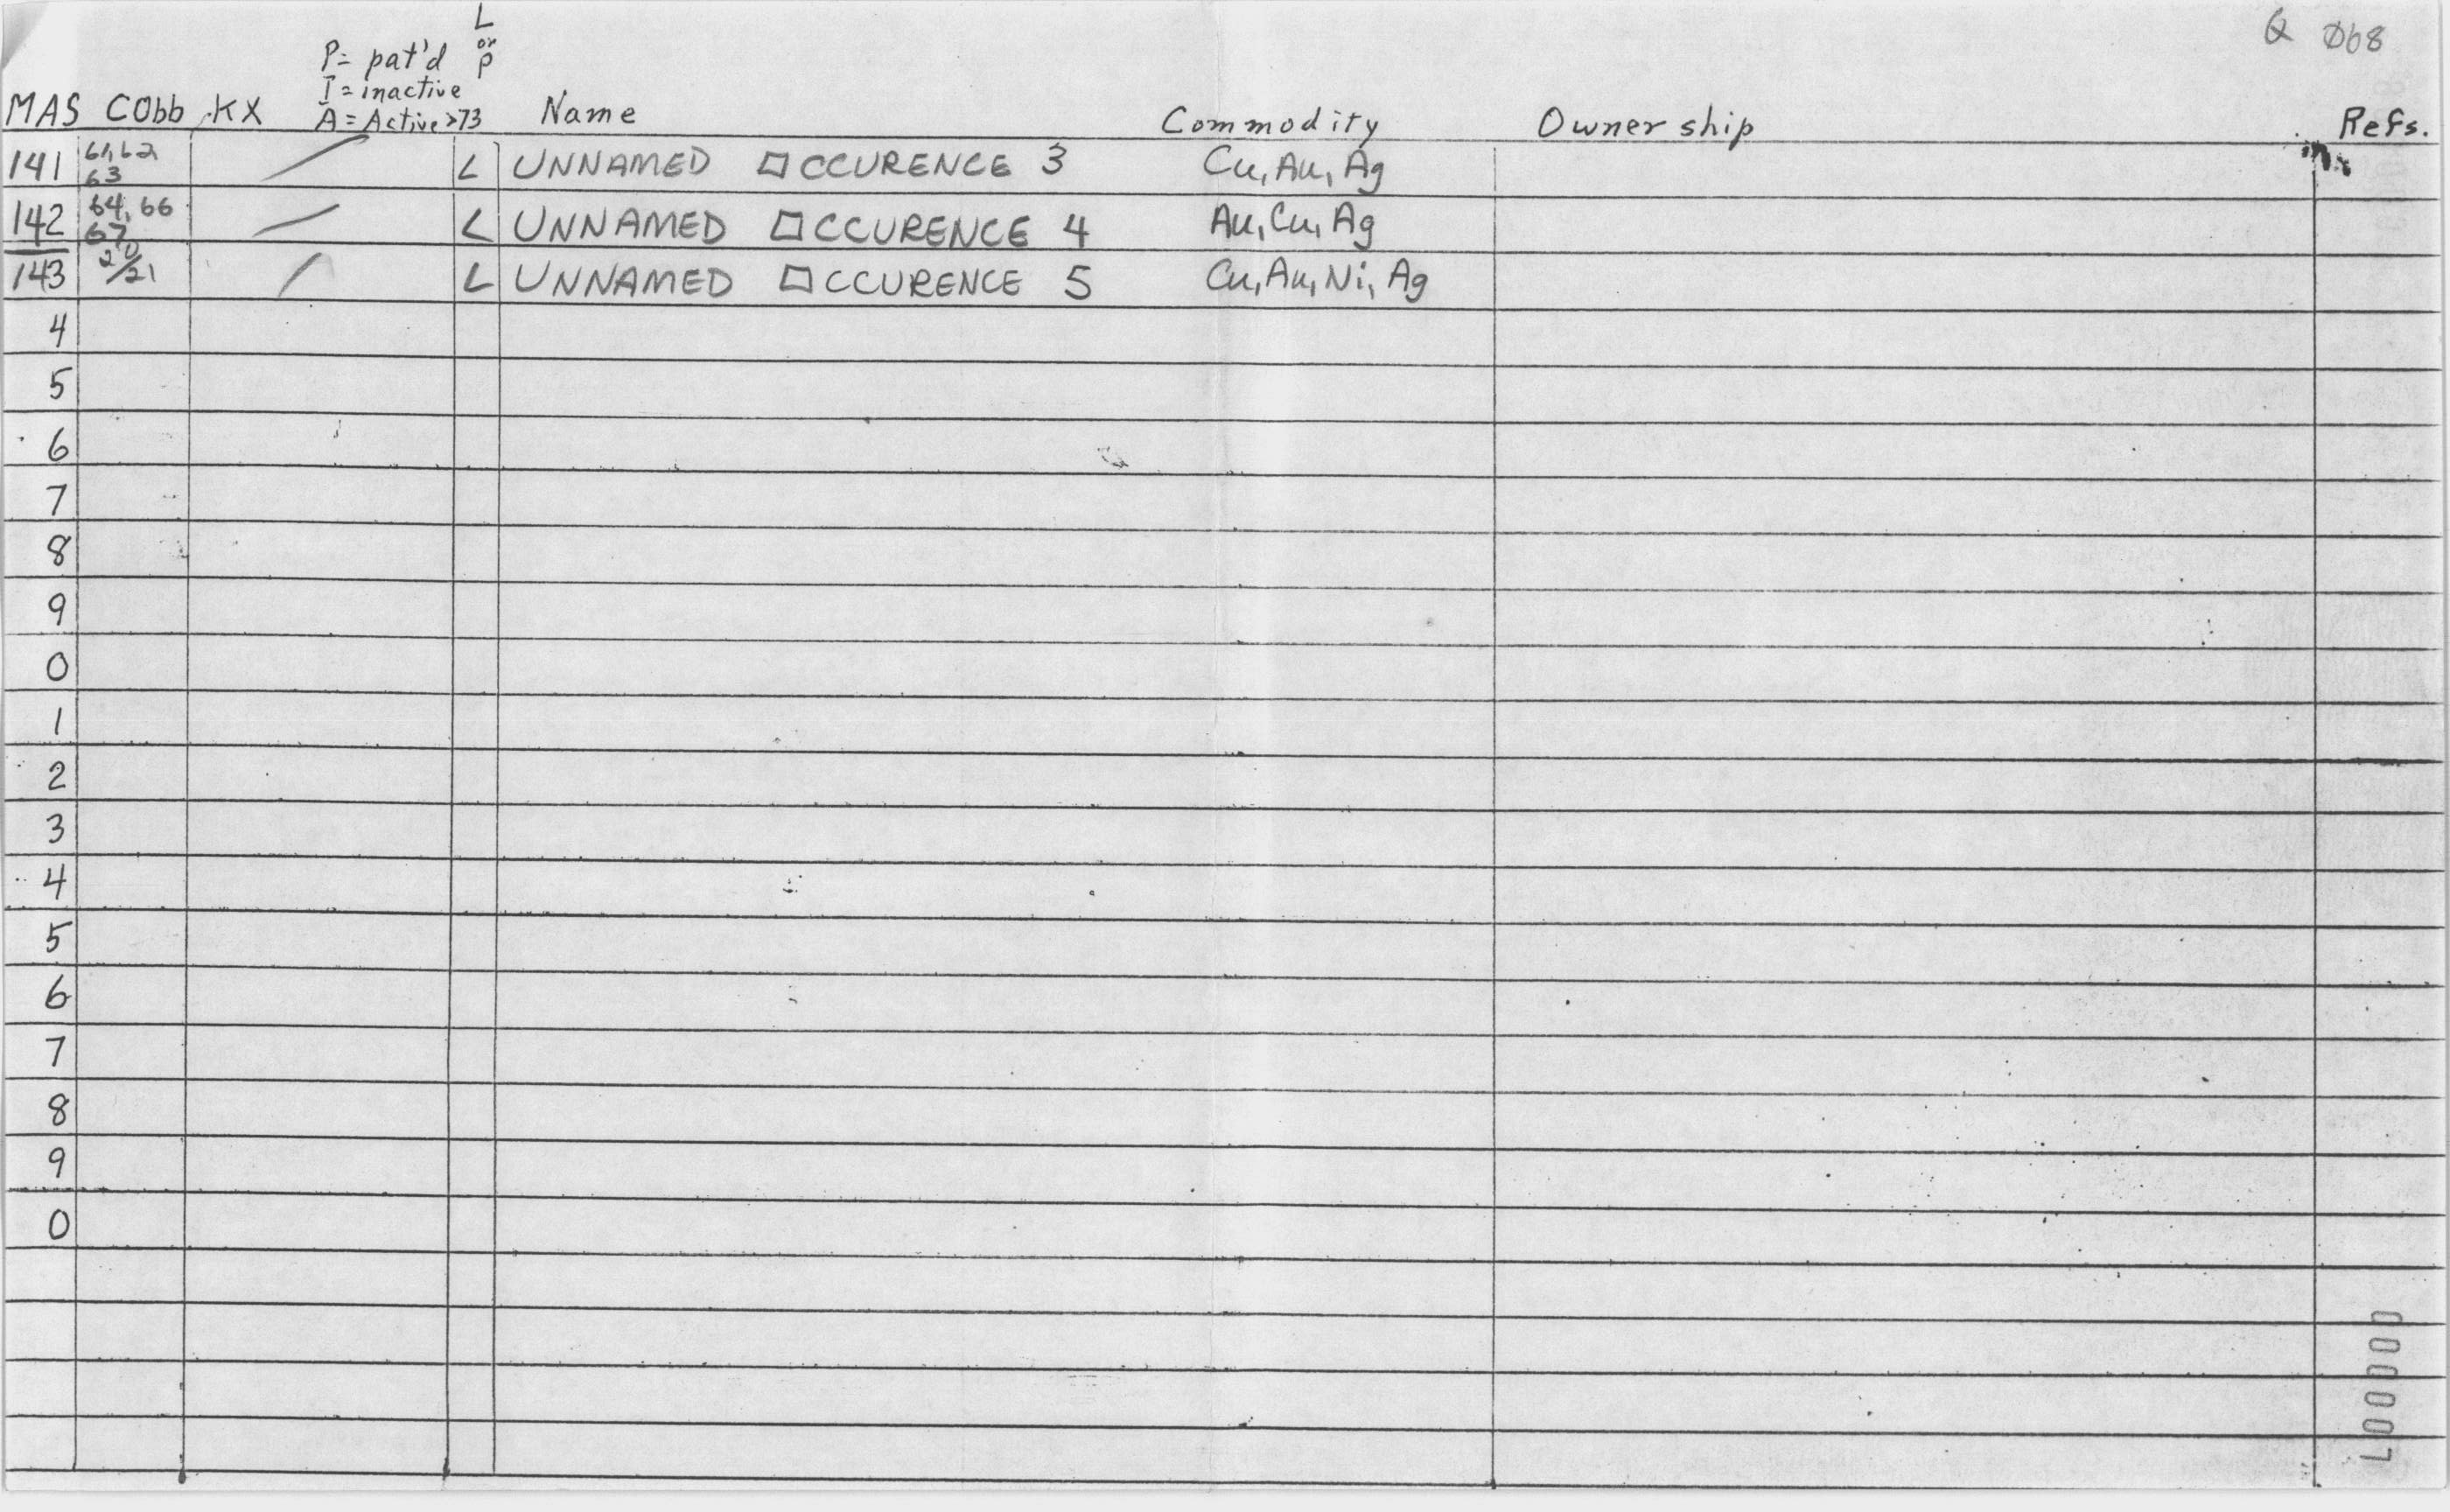 L
or
P
P= pat'd
I = inactive
A = Active >73
Q Ø68
MAS Cobb KX Name Commodity Ownership Refs.
141 61,62 63 L UNNAMED OCCURENCE 3 Cu, Au, Ag
142 64, 66 67 L UNNAMED OCCURENCE 4 Au, Cu, Ag
143 20/21 L UNNAMED OCCURENCE 5 Cu, Au, Ni, Ag
4
5
6
7
8
9
0
1
2
3
4
5
6
7
8
9
0
000007